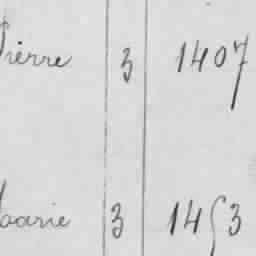 Pierre 3 1407
Marie 3 1453